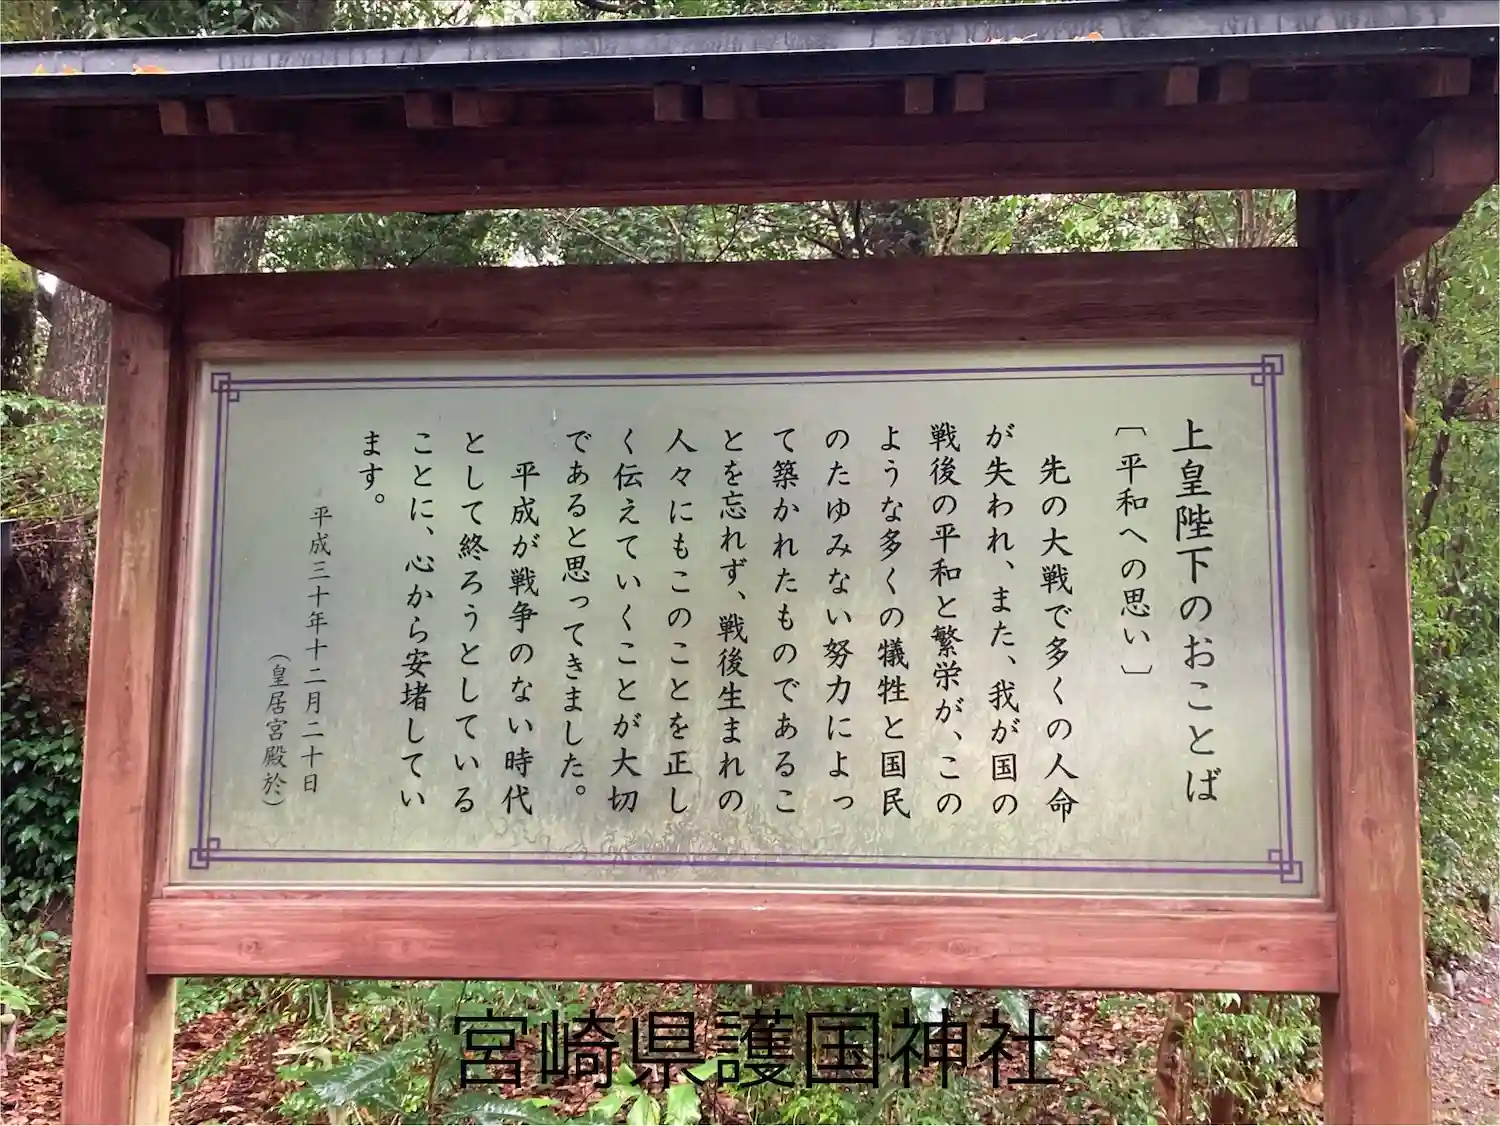 上皇陛下のおことば
〔平和への思い〕
先の大戦で多くの人命
が失われ、また、我が国の
戦後の平和と繁栄が、この
ような多くの犠牲と国民
のたゆみない努力によっ
て築かれたものであるこ
とを忘れず、戦後生まれの
人々にもこのことを正し
く伝えていくことが大切
であると思ってきました。
平成が戦争のない時代
として終ろうとしている
ことに、心から安堵してい
ます。
平成三十年十二月二十日
（皇居宮殿於）
宮崎県護国神社